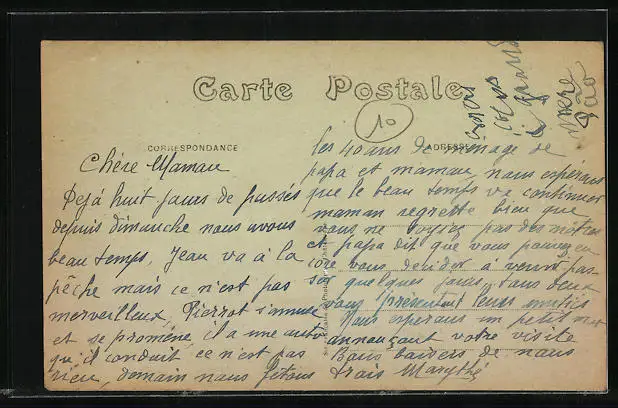 Carte Postale
10
CORRESPONDANCE
ADRESSE
Chère Maman
Dejá huit jours de passés
depuis dimanche nous avons
beau temps, Jean va à la
pêche mais ce n'est pas
merveilleux, Pierrot s'amuse
et se promène, il a une auto
qu'il conduit, ce n'est pas
rien, demain nous fêtons
les 40 ans de menage de
papa et maman, nous espérons
que le beau temps va continuer
maman regrette bien que
vous ne soyiez pas des nôtres
et papa dit que vous pouvez en
core vous decider à venir pas
ser quelques jours, tous deux
vous presentent leurs amitiés
Nous esperons un petit mot
annonçant votre visite
Bons baisers de nous
trois Marythé